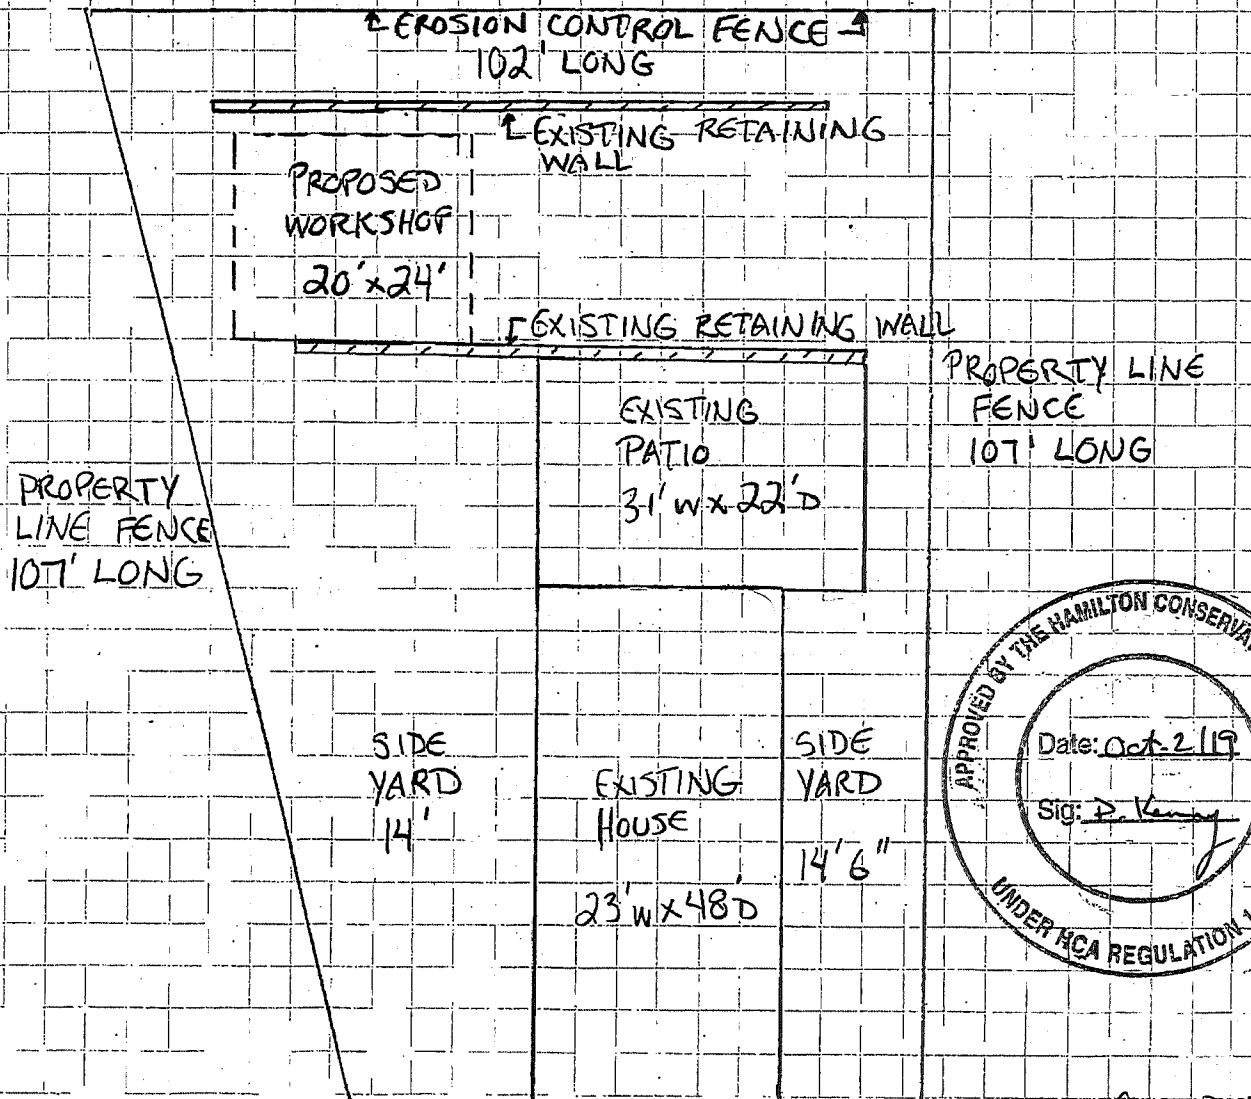 EROSION CONTROL FENCE
102' LONG
EXISTING RETAINING
WALL
PROPOSED
WORKSHOP
20' x 24'
EXISTING RETAINING WALL
EXISTING
PATIO
31' W x 22' D
PROPERTY LINE
FENCE
107' LONG
PROPERTY
LINE FENCE
107' LONG
SIDE
YARD
14'
EXISTING
HOUSE
23' W x 48' D
SIDE
YARD
14' 6"
APPROVED BY THE HAMILTON CONSERVA
Date: Oct. 2/19
Sig: D. Kenny
UNDER HCA REGULATION 1